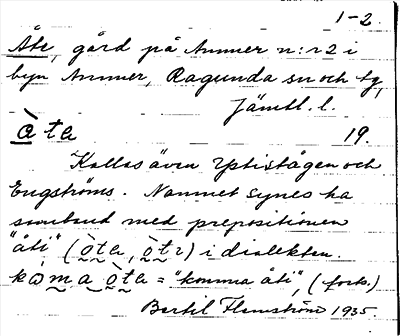 1-2.
Åte, gård på Ammer n:r 2 i
byn Ammer, Ragunda sn och tg,
Jämtl. l.
òta 19.
Kallas även
och
Engströms. Namnet synes ha
samband med prepositionen
"åti" (òta, òtɩ) i dialekten.
kòma òta = "komma åti", (forts.)
Bertil Flemström 1935.